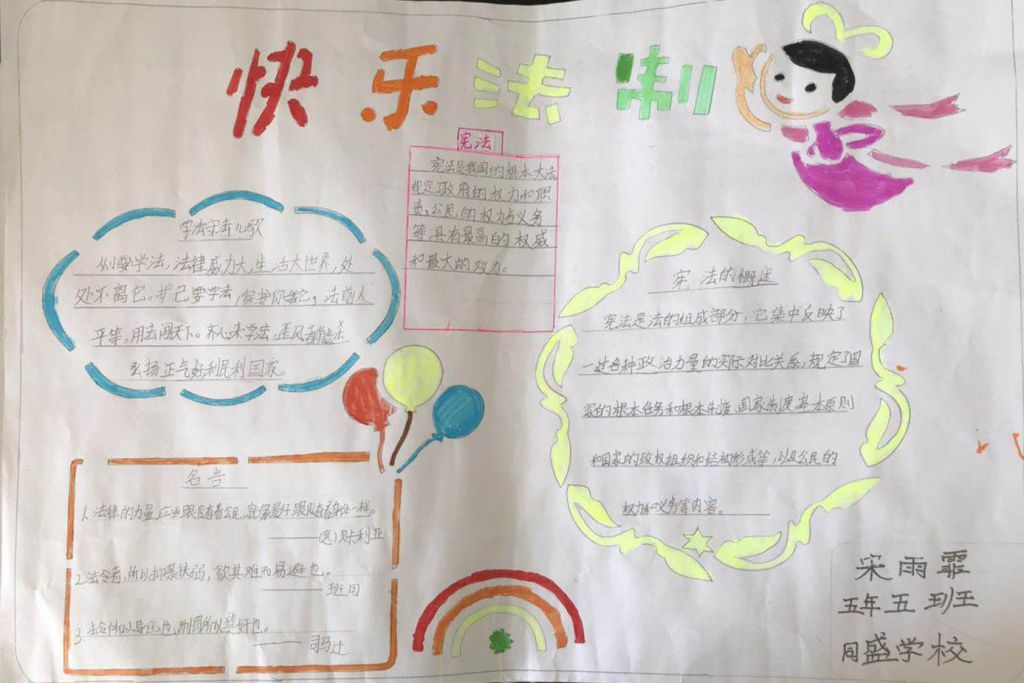 快乐法制
宪法
宪法是我国的根本大法
规定了政府的权力和职
责,公民的权力与义务
等,具有最高的权威
和最大的效力。
学法守法儿歌
从小要学法,法律威力大,生活大世界,处
处不离它。护己要学法,保护你我它。法前人
平等,用法闯天下。齐心来学法,歪风
弘扬正气好利民利国家。
宪法的概述
宪法是法的组成部分,它集中反映了
一过各种政治力量的实际对比关系,规定了国
家的根本任务和根本制度,国家制度基本原则
和国家的政权组织和结构形成等,以及公民的
权力和义务等内容。
名言
1.法律的力量,应当跟随着公民,就像影子跟随着身体一样。
———(意)贝卡利亚
2.法令者,所以抑暴扶弱,欲其难而易避也。
——— 班固
3.法令所以导民也,刑罚所以禁奸也。
——— 司马迁
宋雨霏
五年五班
同盛学校